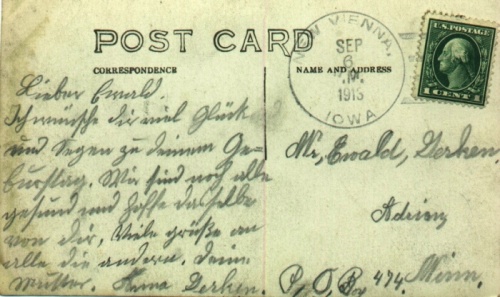 POST CARD
CORRESPONDENCE
NAME AND ADDRESS
NEW VIENNA,
SEP
6
.M.
1913
IOWA
U.S. POSTAGE
1 CENT 1
Lieber Ewald.
Ich wünsche dir viel Glück
und Segen zu deinem Ge-
burtstag. Wir sind noch alle
gesund und hoffe dasselbe
von dir, Viele grüße an
alle die andern. Deine
Mutter. Anna Derken.
Mr, Ewald, Derken
Adrian
P, O, Box 474. Minn.